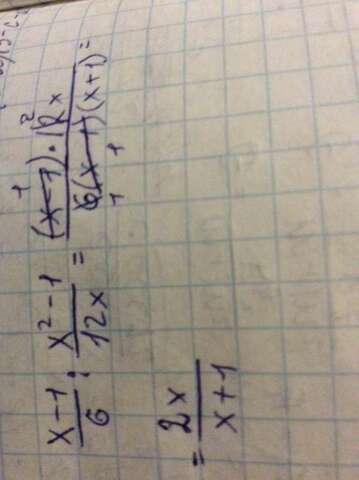 x-1/6 : x²-1/12x = (x-1)·12x/6(x-1)(x+1) =
= 2x/x+1